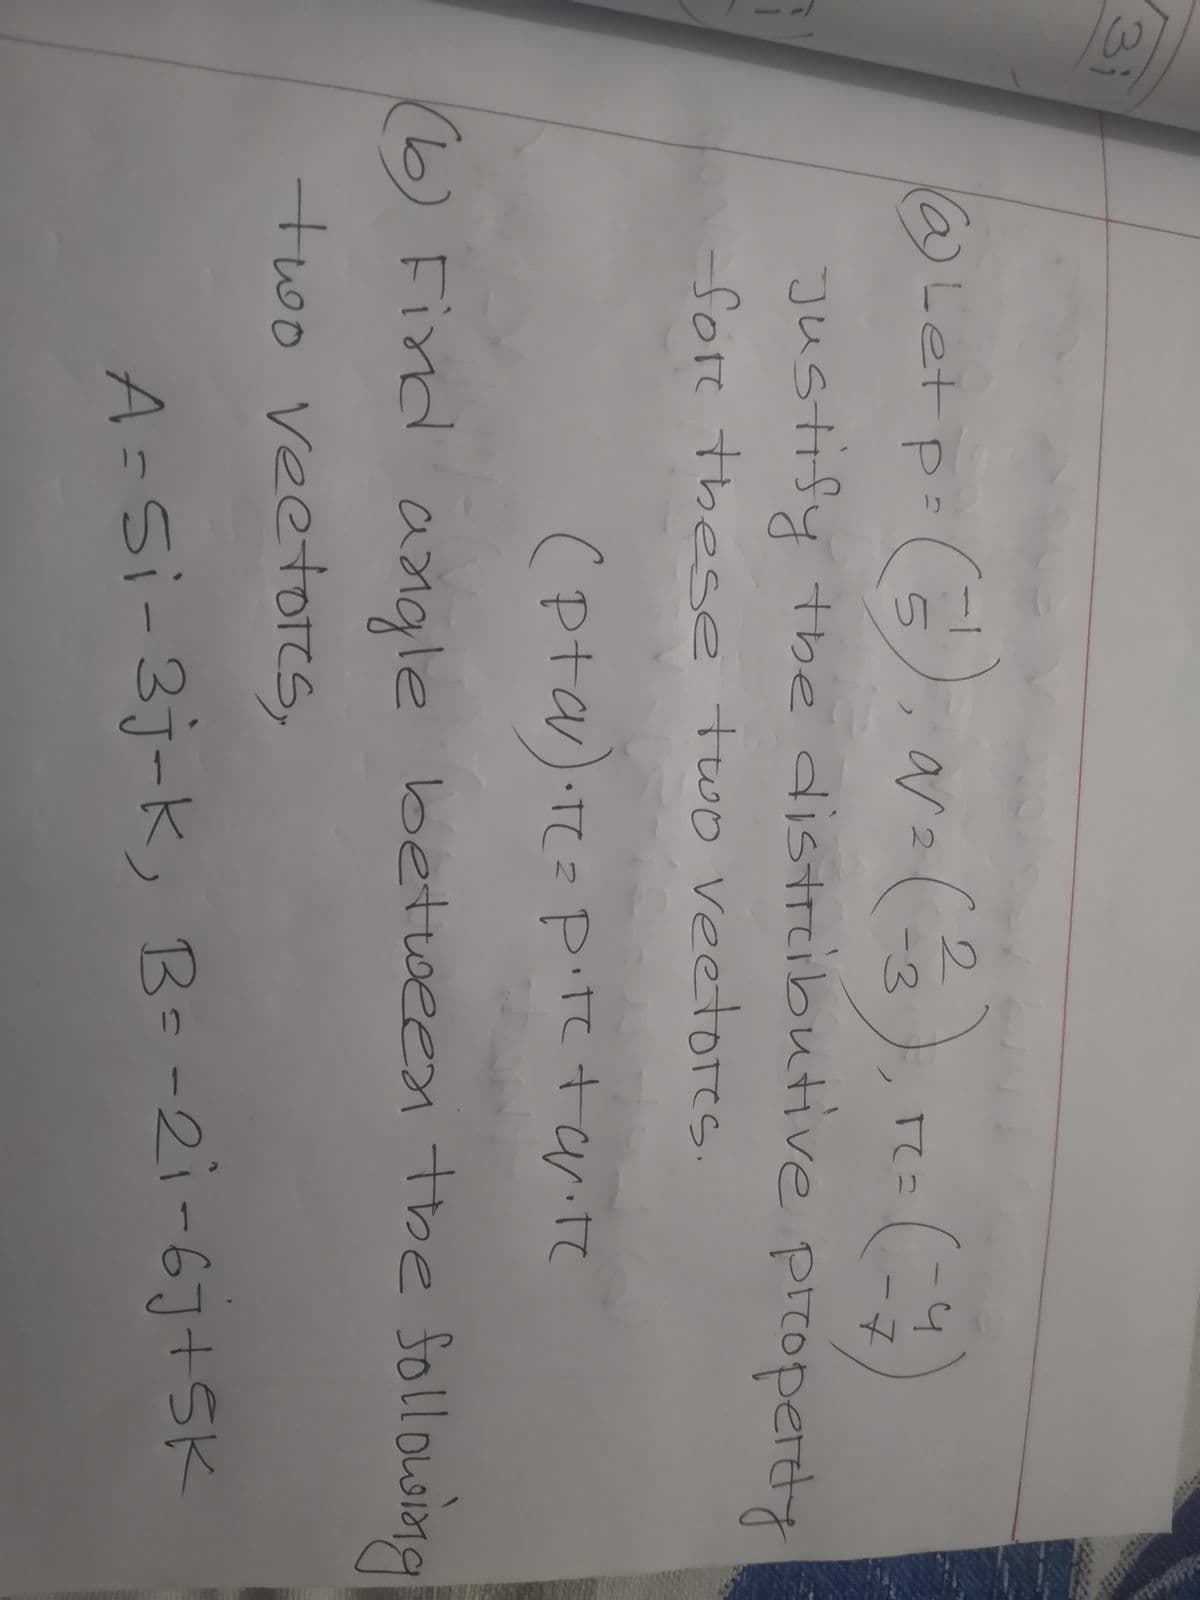 3i
(a) Let p = (-1 5), q = (2 -3), r = (-4 -7)
Justify the distributive property
for these two vectors.
(p+q)·r = p·r + q·r
(b) Find angle between the following
two vectors,
A = 5i - 3j - k, B = -2i - 6j + 5k